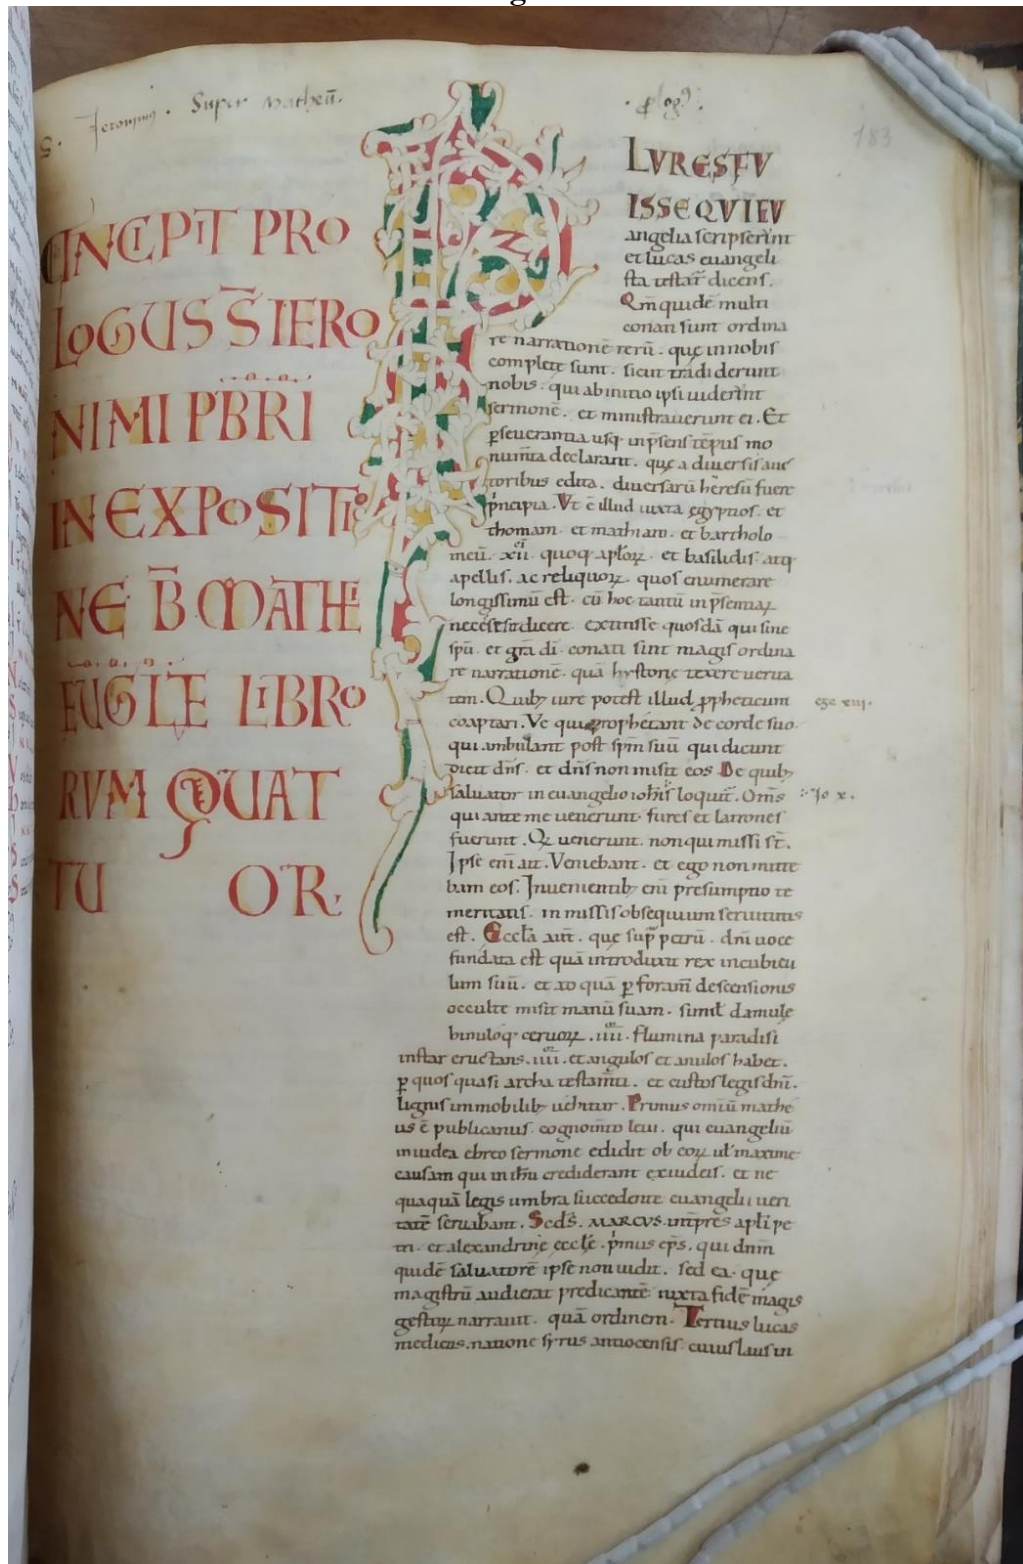 Jeronimꝰ. Super Matheū.
ꝓlogꝰ.
183
INCIPIT PRO
LOGUS S̄ IERO
NIMI PB̄RI
IN EXPOSITIO
NE B̄ MATHEI
EUGL̄E LIBRO
RVM QUAT
TUOR.
P
LVRES FV
ISSE QVI EV
angelia scripserint
et lucas euangeli
sta testat̄ dicens.
Qm̄ quidē multi
conati sunt ordina
re narrationē rerū. quę in nobis
complete sunt. sicut tradiderunt
nobis. qui ab initio ipsi uiderunt
sermonē. et ministrauerunt ei. Et
ꝑseuerantia usq; in p̄sens tēpus mo
num̄ta declarant. quę a diuersis auc
toribus edita. diuersarū heresiū fuere
p̍ncipia. Vt ē illud iuxta egyptios. et
thomam. et mathiam. et bartholo
meū. xii. quoq; apl̄oꝝ. et basilidis atq;
apellis. ac reliquoꝝ. quos enumerare
longissimū est. cū hoc tantū in p̄sentiaꝝ
necesse sit dicere. extitisse quosdā qui sine
sp̄u. et gr̄a dī. conati sint magis ordina
re narrationē. quā hystorię texere uerita
tem. Quibꝫ iure potest illud ꝓpheticum
coaptari. Ve qui prophetant de corde suo
qui ambulant post sp̄m suū qui dicunt
dicit dn̄s. et dn̄s non misit eos. De quibꝫ
saluator in euangelio ioh̄is loquit̄. Om̄s
qui ante me uenerunt. fures et latrones
fuerunt. Qꝫ uenerunt. non qui missi st̄.
Ipse eni ait. Veniebant. et ego non mitte
bam eos. In uenientibꝫ eni presumptio te
meritatis. in missis obsequium seruitutis
est. Eccl̄a aut̄. quę sup̄ petrū. dn̄i uoce
fundata est quā introduxit rex in cubicu
lum suū. et ad quā ꝑ foram̄ descensionis
occulte misit manū suam. simil̄ damulę
binuloq; ceruoꝝ. iiii. flumina paradisi
instar eructans. iiii. et angulos et anulos habet.
ꝑ quos quasi archa testam̄ti. et custos legis dn̄i.
lignis immobilibꝫ uehitur. Primus omiū mathe
us ē publicanus. cognom̄to leui. qui euangeliū
in iudea ebreo sermone edidit ob eoꝝ ul̄ maxime
causam qui in ih̄u crediderant ex iudeis. et ne
quaquā legis umbra succedente euangelii ueri
tatē seruabant. Scd̄s. MARCVS. intp̄res apl̄i pe
tri. et alexandrinę eccl̄ę. p̍mus ep̄s. qui dn̄m
quidē saluatorē ipse non uidit. sed ea. quę
magistrū audierat predicantē iuxta fidē magis
gestoꝝ narrauit. quā ordinem. Tertius lucas
medicus. natione syrus antiocensis cuius laus in
eze xiii.
Jo x.